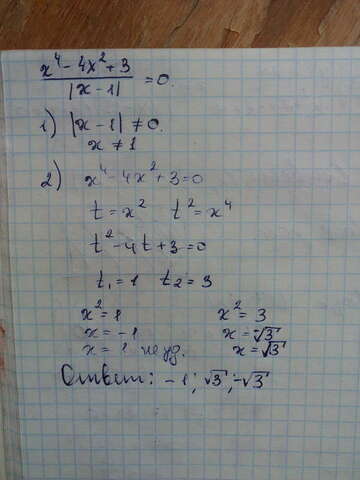 x⁴ - 4x² + 3
|x - 1|
= 0.
1) |x - 1| ≠ 0.
x ≠ 1
2) x⁴ - 4x² + 3 = 0
t = x² t² = x⁴
t² - 4t + 3 = 0
t₁ = 1 t₂ = 3
x² = 1 x² = 3
x = -1 x = -√3
x = 1 не уд. x = √3
Ответ: -1; √3; -√3